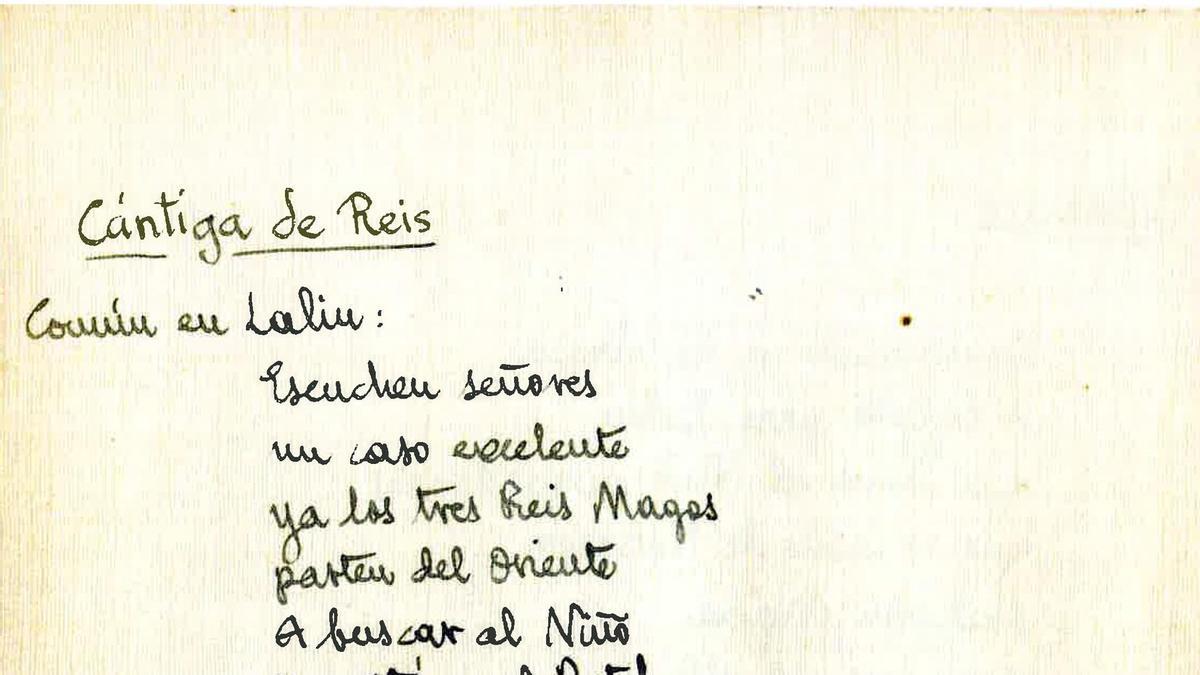 Cántiga de Reis
Común en Lalin:
Escuchen señores
un caso excelente
ya los tres Reis Magos
parten del Oriente
A buscar al Niño